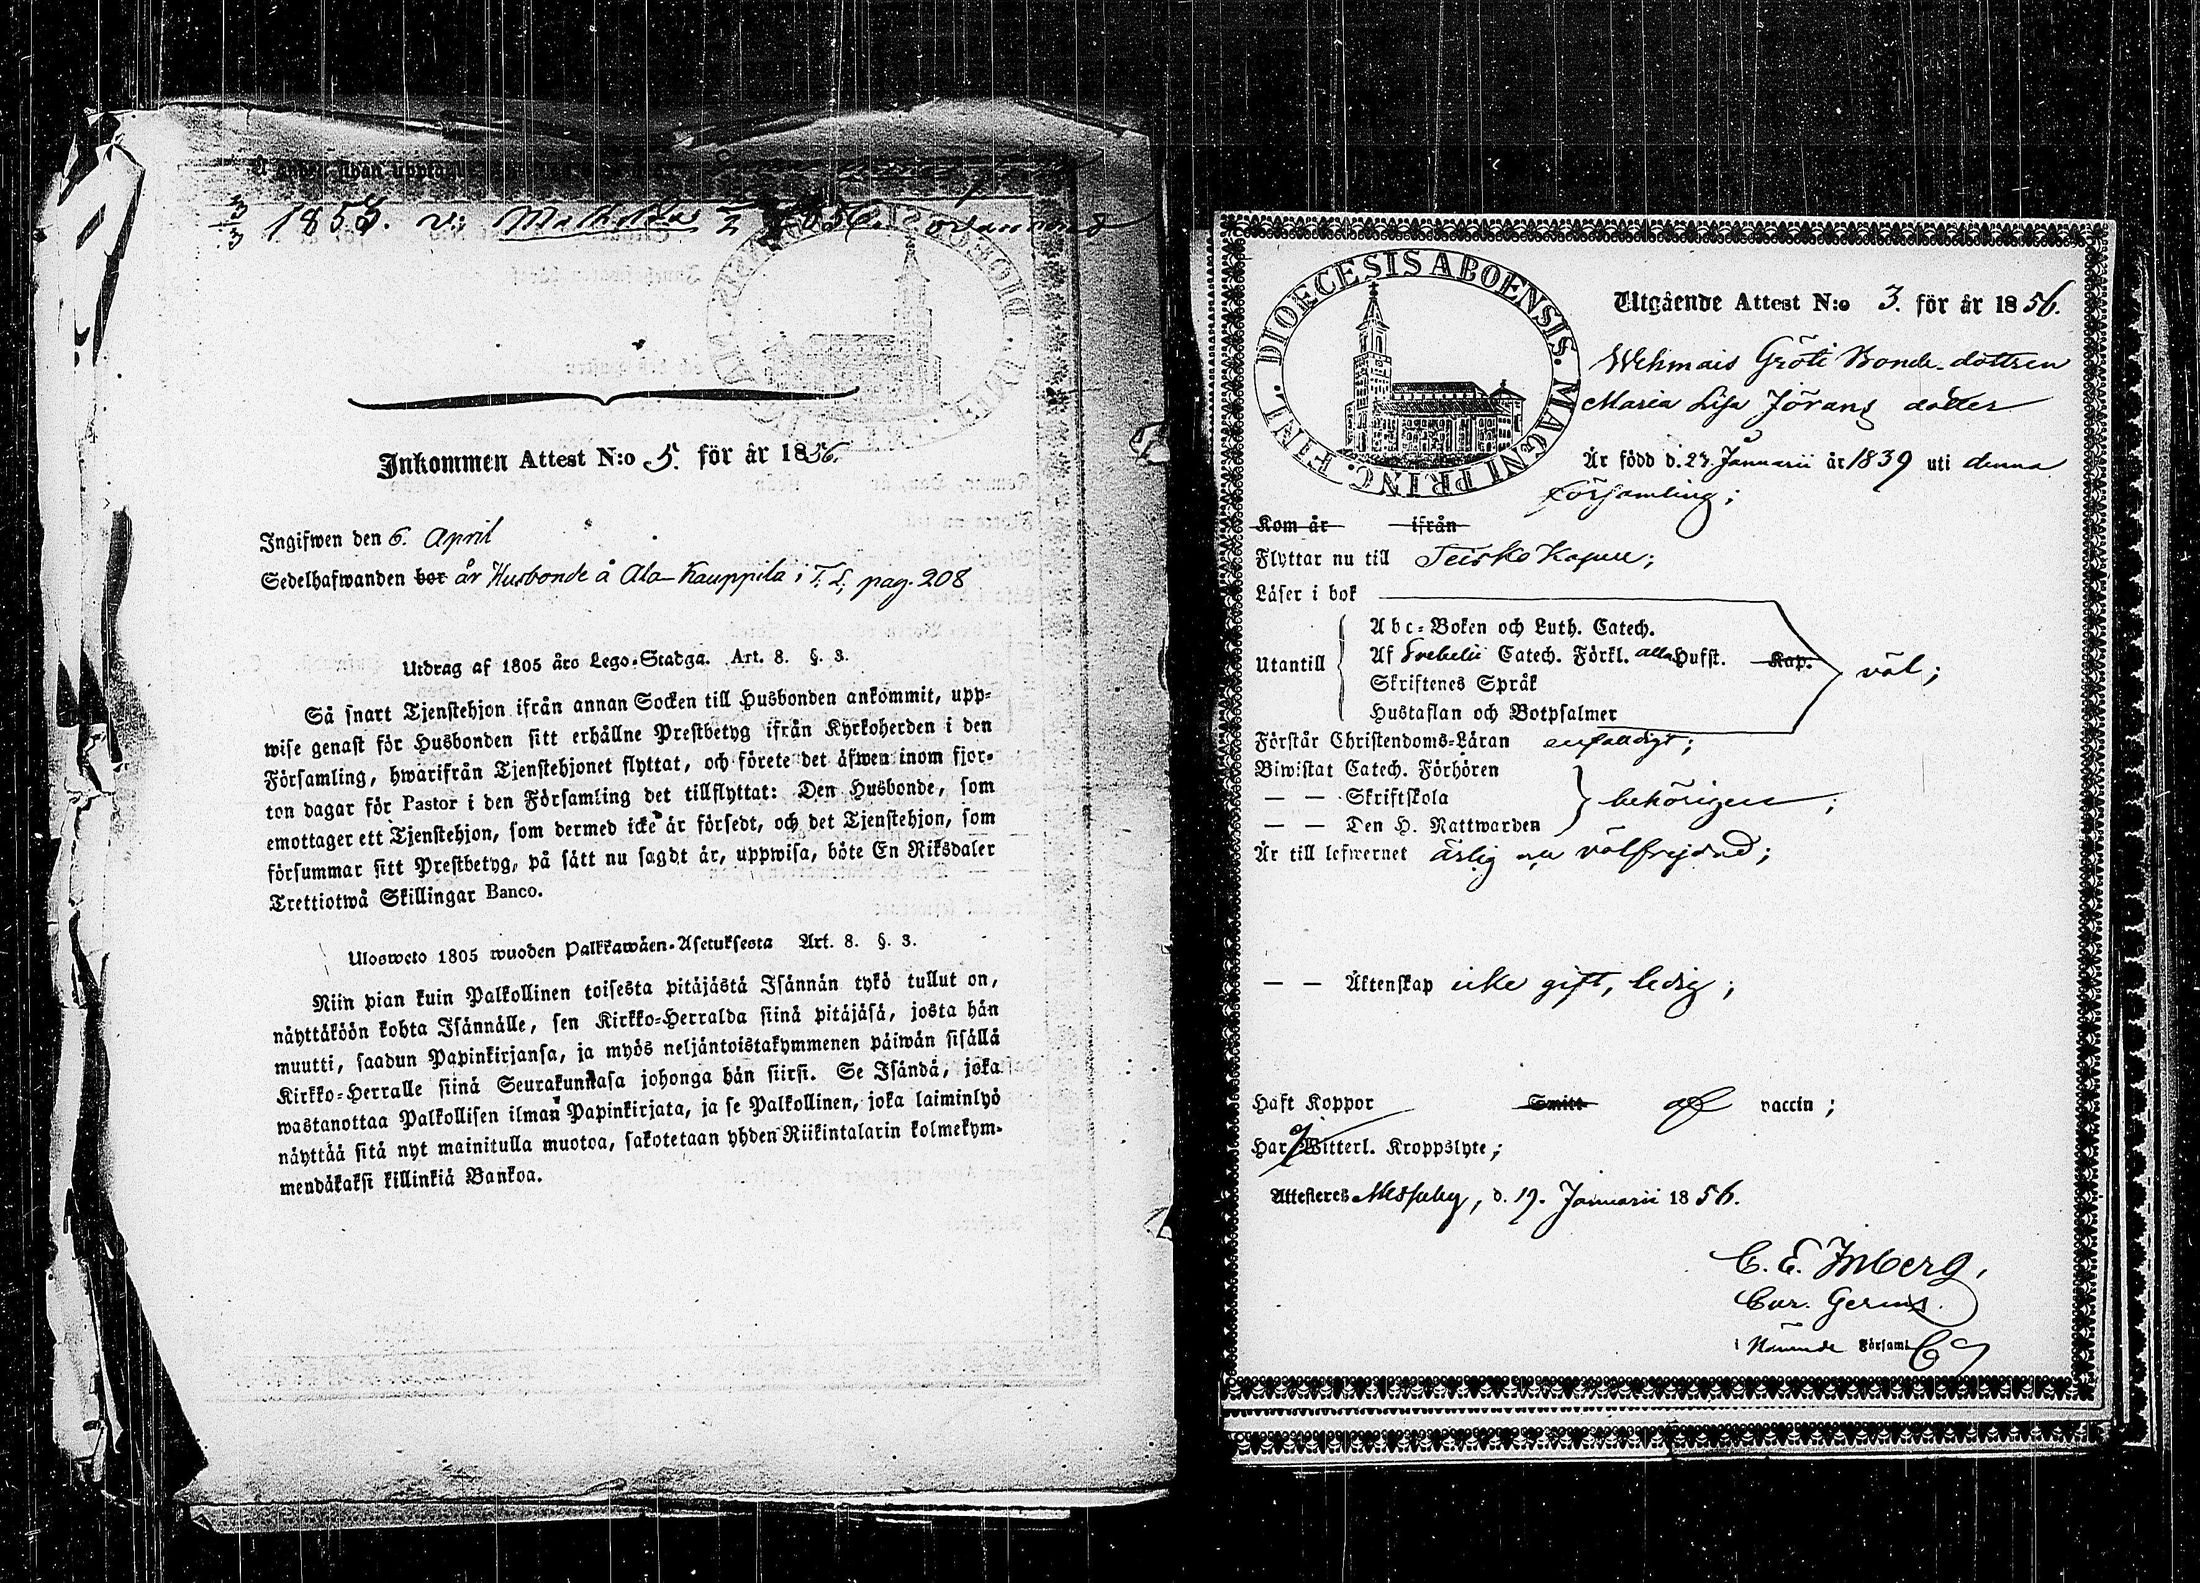 3/3 1855. v: Mathilda 1856.
Inkommen Attest N:o 5. för år 1856.
Ingifwen den 6. April
Sedelhafwanden bor är Husbonde å Ala-Kauppila i T. L; pag. 208
Utdrag af 1805 års Lego-Stadga. Art. 8. §. 3.
Så snart Tjenstehjon ifrån annan Socken till Husbonden ankommit, upp-
wise genast för Husbonden sitt erhållne Prestbetyg ifrån Kyrkoherden i den
Församling, hwarifrån Tjenstehjonet flyttat, och förete det äfwen inom fjor-
ton dagar för Pastor i den Församling det tillflyttat: Den Husbonde, som
emottager ett Tjenstehjon, som dermed icke är försedt, och det Tjenstehjon, som
försummar sitt Prestbetyg, på sätt nu sagdt är, uppwisa, böte En Riksdaler
Trettiotwå Skillingar Banco.
Ulosweto 1805 wuoden Palkkawäen-Asetuksesta Art. 8. §. 3.
Niin pian kuin Palkollinen toisesta pitäjästä Isännän tykö tullut on,
näyttäköön kohta Isännälle, sen Kirkko-Herralda siinä pitäjäsä, josta hän
muutti, saadun Papinkirjansa, ja myös neljäntoistakymmenen päiwän sisällä
Kirkko-Herralle siinä Seurakunnasa johonga hän siirsi. Se Isändä, joka
wastanottaa Palkollisen ilman Papinkirjata, ja se Palkollinen, joka laiminlyö
näyttää sitä nyt mainitulla muotoa, sakotetaan yhden Riikintalarin kolmekym-
mendäkaksi killinkiä Bankoa.
DIOECESIS ABOENSIS. MAGNI PRINC. FINL.
Utgående Attest N:o 3. för år 1856.
Wehmais Gröti Bonde-dottren
Maria Lisa Jörans dotter
Är född d. 27. Januarii år 1839 uti denna
församling;
Kom år ifrån
Flyttar nu till Teisko Kapell;
Läser i bok
Utantill
Abc-Boken och Luth. Catech.
Af Svebelii Catech. Förkl. alla Hufst. Kap.
Skriftenes Språk
Hustaflan och Botpsalmer
väl;
Förstår Christendoms-Läran enfaldigt;
Biwistat Catech. Förhören
— — Skriftskola
— — Den H. Nattwarden
behörigen;
Är till lefwernet ärlig och välfrejdad;
— — Äktenskap icke gift, ledig;
Haft Koppor Smitt af vaccin;
Har Witterl. Kroppslyte;
Attesteres Messuby, d. 19. Januarii 1856.
C. E. Inberg,
Cur. Gerens.
i Nämnde Församl.